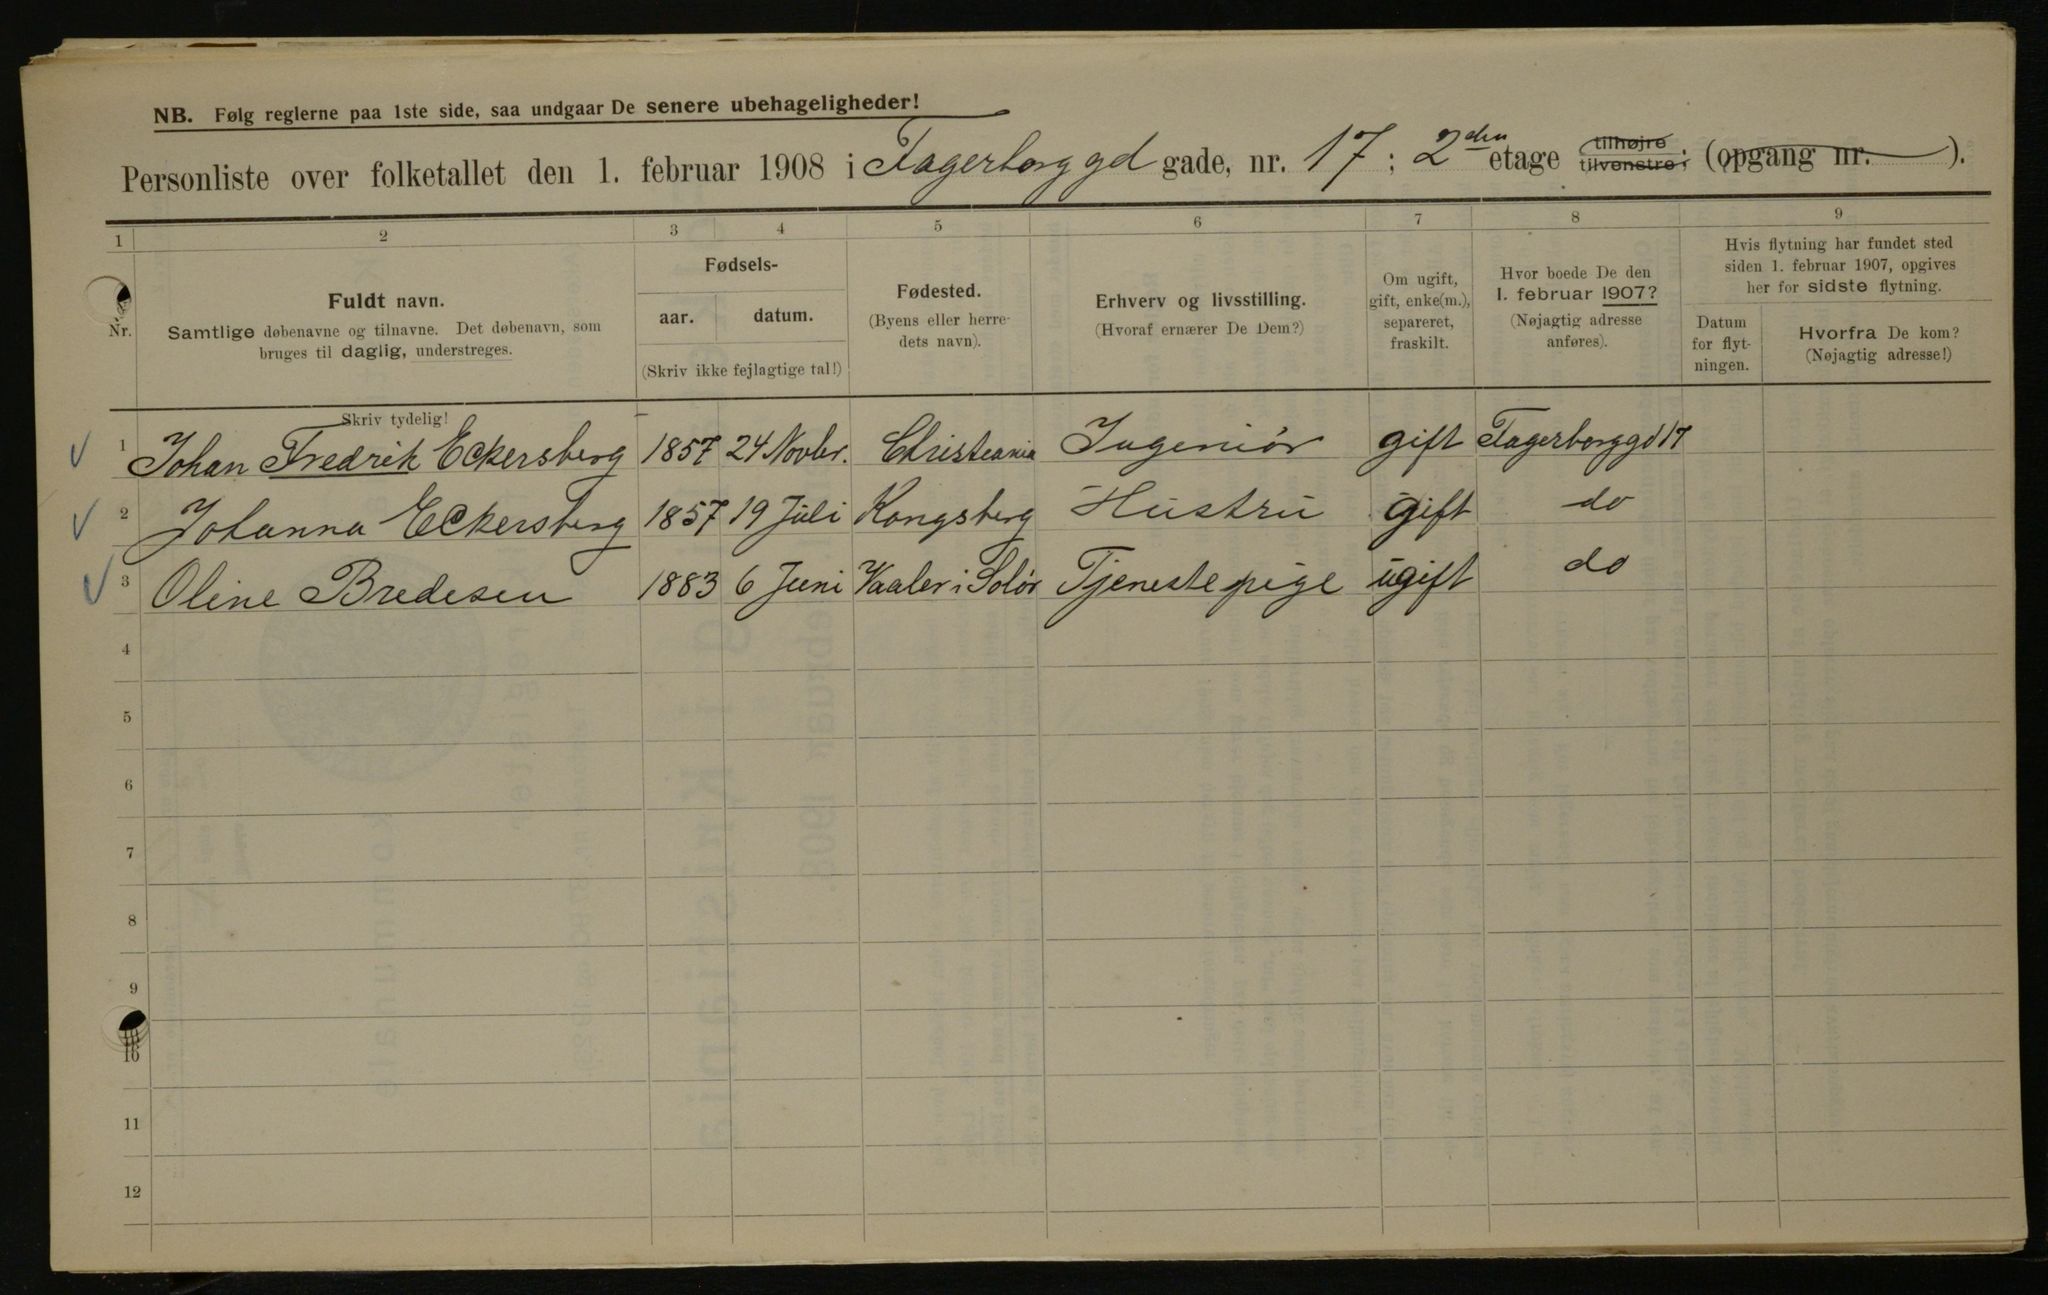 NB. Følg reglerne paa 1ste side, saa undgaar De senere ubehageligheder!
Personliste over folketallet den 1. februar 1908 i Fagerborggd gade, nr. 17; 2den etage tilhøjre tilvenstre; (opgang nr. ).
1 2 3 4 5 6 7 8 9
Nr.
Fuldt navn.
Samtlige døbenavne og tilnavne. Det døbenavn, som
bruges til daglig, understreges.
Fødsels-
aar. datum.
(Skriv ikke fejlagtige tal!)
Fødested.
(Byens eller herre-
dets navn).
Erhverv og livsstilling.
(Hvoraf ernærer De Dem?)
Om ugift,
gift, enke(m.),
separeret,
fraskilt.
Hvor boede De den
1. februar 1907?
(Nøjagtig adresse
anføres).
Hvis flytning har fundet sted
siden 1. februar 1907, opgives
her for sidste flytning.
Datum
for flyt-
ningen.
Hvorfra De kom?
(Nøjagtig adresse!)
Skriv tydelig!
1 Johan Fredrik Eckersberg 1857 24 Novbr. Christiania Ingeniør gift Fagerborggd 17
2 Johanna Eckersberg 1857 19 Juli Kongsberg Hustru gift do
3 Oline Bredesen 1883 6 Juni Vaaler i Solør Tjenestepige ugift do
4
5
6
7
8
9
10
11
12